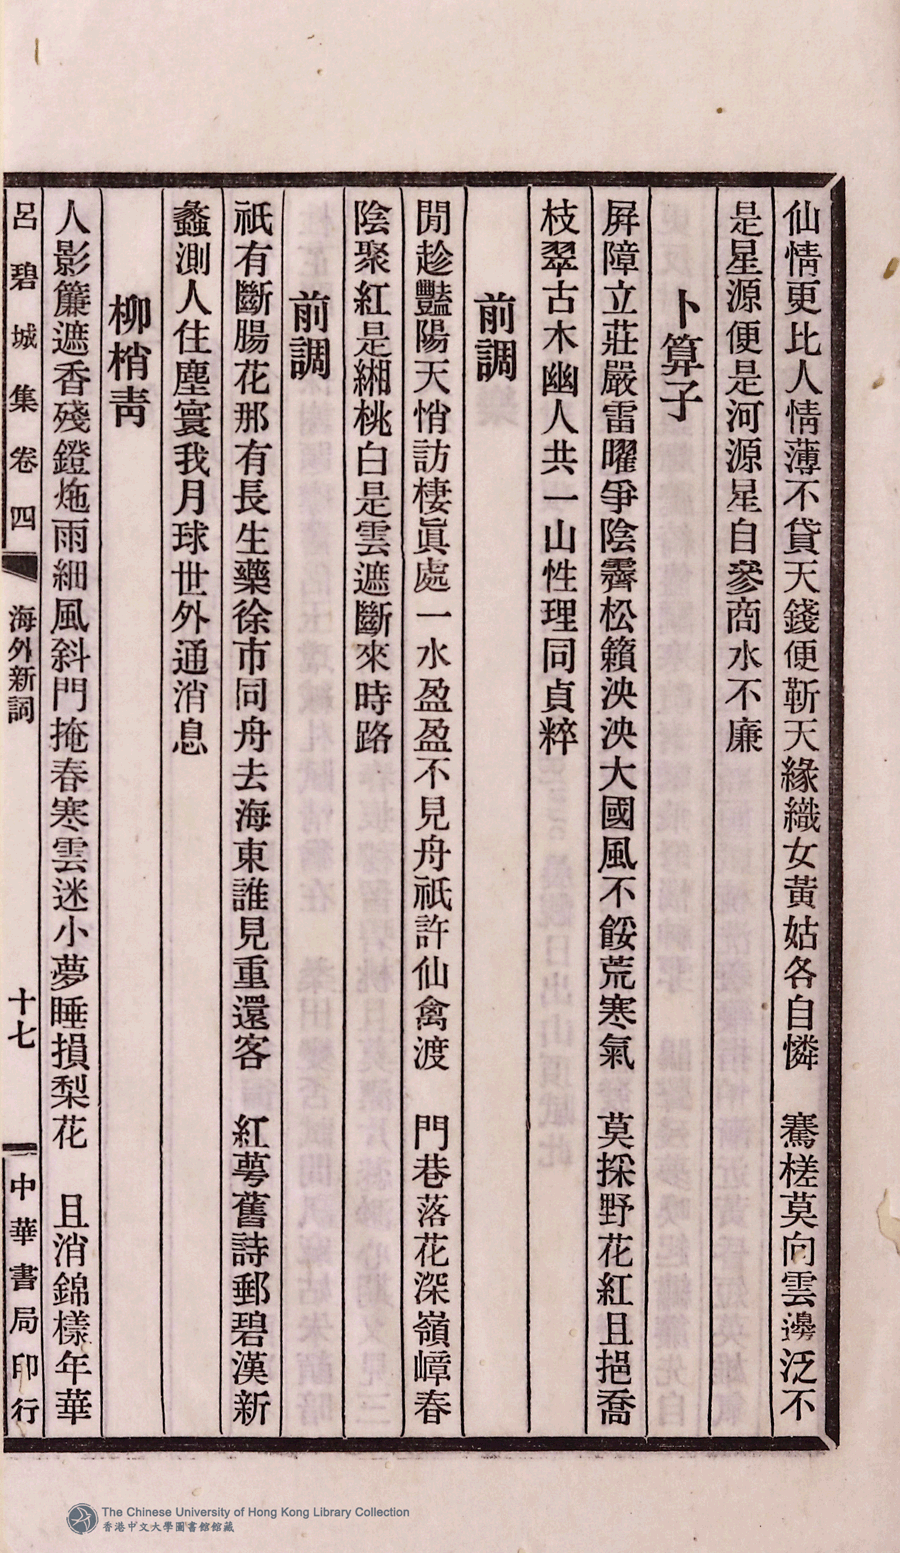 仙情更比人情薄不貸天錢便靳天緣織女黃姑各自憐　騫槎莫向雲邊泛不
是星源便是河源星自參商水不廉
卜算子
屛障立莊嚴雷曜爭陰霽松籟泱泱大國風不餒荒寒氣　莫採野花紅且挹喬
枝翠古木幽人共一山性理同貞粹
前調
閒趁豔陽天悄訪棲眞處一水盈盈不見舟祇許仙禽渡　門巷落花深嶺嶂春
陰聚紅是緗桃白是雲遮斷來時路
前調
祇有斷腸花那有長生藥徐市同舟去海東誰見重還客　紅萼舊詩郵碧漢新
蠡測人住塵寰我月球世外通消息
柳梢靑
人影簾遮香殘鐙灺雨細風斜門掩春寒雲迷小夢睡損梨花　且消錦樣年華
呂碧城集卷四　海外新詞　十七　中華書局印行
The Chinese University of Hong Kong Library Collection
香港中文大學圖書館館藏